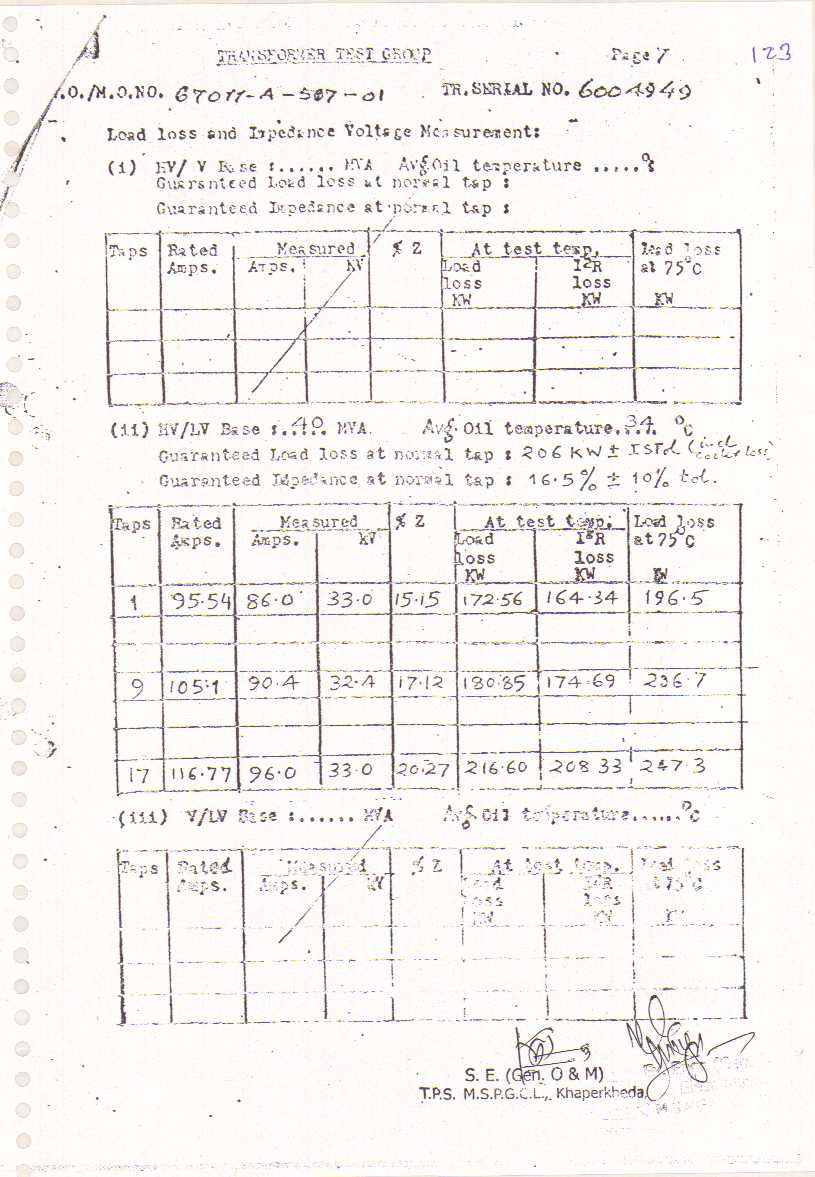 TRANSFORMER TEST GROUP Page 7 123
.O./M.O.NO. 67011-A-507-01 TR.SERIAL NO. 6004949
Load loss and Impedance Voltage Measurement:
(i) HV/ V Base :...... MVA Avg.Oil temperature .....°:
Guaranteed Load loss at normal tap :
Guaranteed Impedance at normal tap :
Taps Rated Measured % Z At test temp. load loss
Amps. Amps. KV Load I²R at 75°C
loss loss
KW KW KW
(ii) HV/LV Base :.40.. MVA. Avg. Oil temperature..34.. °C
Guaranteed Load loss at normal tap : 206 KW ± ISTol (incl cooler loss)
Guaranteed Impedance at normal tap : 16.5% ± 10% tol.
Taps Rated Measured % Z At test temp. Load loss
Amps. Amps. kV Load I²R at 75°C
loss loss
KW KW KW
1 95.54 86.0 33.0 15.15 172.56 164.34 196.5
9 105.1 90.4 32.4 17.12 180.85 174.69 236.7
17 116.77 96.0 33.0 20.27 216.60 208.33 247.3
(iii) V/LV Base :....... MVA Avg. Oil temperature......°C
Taps Rated Measured % Z At test temp. Load loss
Amps. Amps. KV Load I²R at 75°C
loss loss
KW KW KW
S. E. (Gen. O & M)
T.P.S. M.S.P.G.C.L., Khaperkheda.